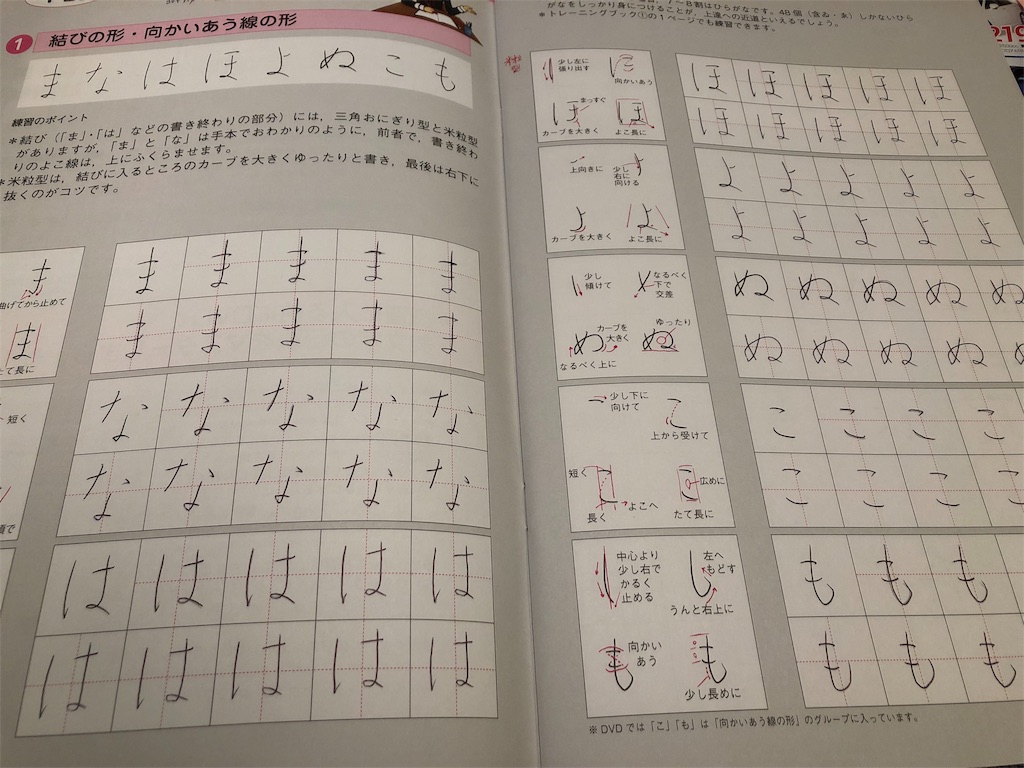 1 結びの形・向かいあう線の形
ま な は ほ よ ぬ こ も
練習のポイント
*結び（「ま」・「は」などの書き終わりの部分）には，三角おにぎり型と米粒型
がありますが，「ま」と「な」は手本でおわかりのように，前者で，書き終わ
りのよこ線は，上にふくらませます。
*米粒型は，結びに入るところのカーブを大きくゆったりと書き，最後は右下に
抜くのがコツです。
ま
曲げてから止めて
ま
たて長に
ま ま ま ま ま
ま ま ま ま ま
短く
な な な な な
な な な な な
は は は は は
は は は は は
7〜8割はひらがなです。48個（含ゐ・ゑ）しかないひら
がなをしっかり身につけることが，上達への近道といえるでしょう。
*トレーニングブック①の1ページでも練習できます。
219
少し左に
張り出す
向かいあう
まっすぐ
カーブを大きく
ほ
よこ長に
ほ ほ ほ ほ ほ
ほ ほ ほ ほ ほ
上向きに
少し
右に
向ける
カーブを大きく
よ
よこ長に
よ よ よ よ よ
よ よ よ よ よ
少し
傾けて
なるべく
下で
交差
カーブを
大きく
なるべく上に
ゆったり
ぬ
ぬ ぬ ぬ ぬ ぬ
ぬ ぬ ぬ ぬ ぬ
少し下に
向けて
上から受けて
短く
長く
よこへ
こ
広めに
たて長に
こ こ こ こ
こ こ こ こ
中心より
少し右で
かるく
止める
左へ
もどす
うんと右上に
も
向かい
あう
も
少し長めに
も も も
も も も
※DVDでは「こ」「も」は「向かいあう線の形」のグループに入っています。